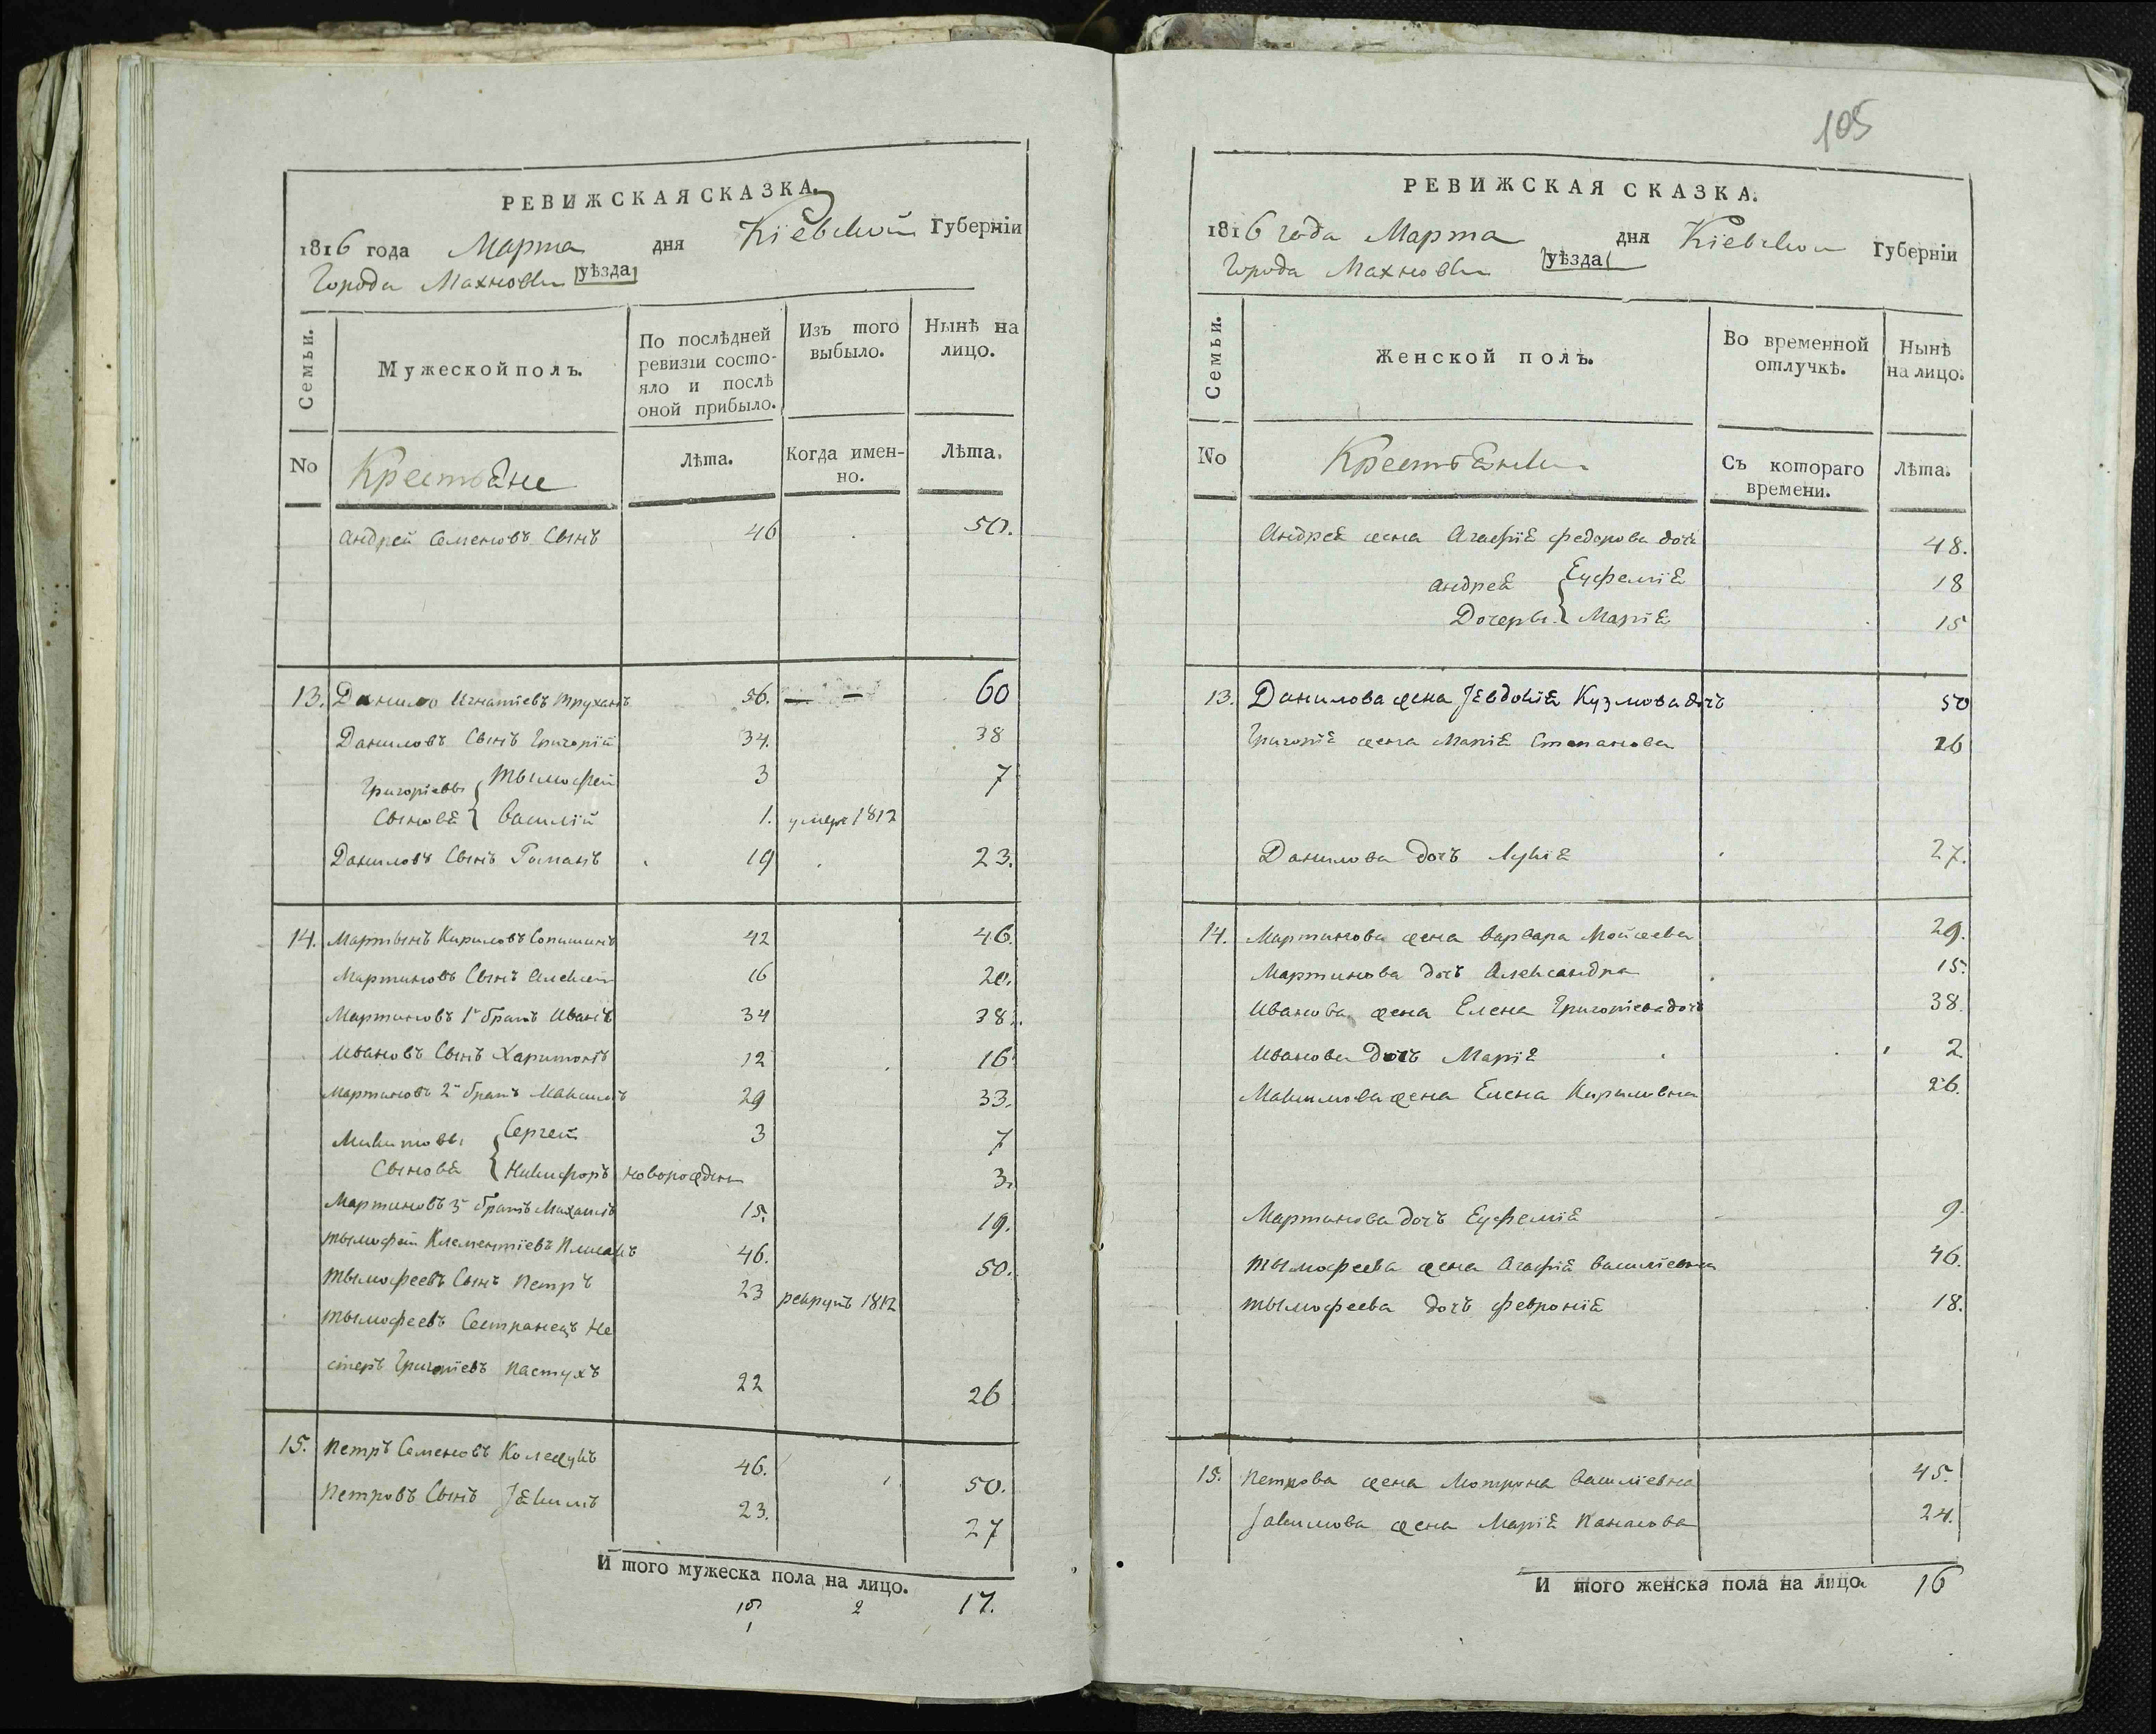 РЕВИЖСКАЯ СКАЗКА.
1816 года Марта дня Кіевской Губерніи
Города Махновки уѣзда
Семьи.
Мужеской полъ.
По послѣдней
ревизіи состо-
яло и послѣ
оной прибыло.
Изъ того
выбыло.
Нынѣ на
лицо.
No
Крестьяне
Лѣта.
Когда имен-
но.
Лѣта.
Андрей Семеновъ Сынъ 46 50.
13. Данило Игнатіевъ Труханъ 56. 60
Даниловъ Сынъ Григорій 34. 38
Григоріевы Тымофей 3 7
Сыновя Василій 1. умере 1812
Даниловъ Сынъ Романъ 19 23.
14. Мартынъ Кириловъ 42 46.
Мартиновъ Сынъ Алексей 16 20.
Мартиновъ 1й братъ Иванъ 34 38.
Ивановъ Сынъ Харитонъ 12 16
Мартиновъ 2й братъ Максимъ 29 33.
Сергей 3 7
Сыновя Никифоръ новорожденъ 3.
Мартиновъ 3й братъ Михаилъ 15. 19.
Тымофей Клементіевъ 46. 50.
Тымофеевъ Сынъ Петръ 23 рекрутъ 1812
Тымофеевъ Сестранецъ Не
стеръ Григоріевъ Пастухъ 22 26
15. Петръ Семеновъ Кожедубъ 46. 50.
Петровъ Сынъ Іякимъ 23. 27
И того мужеска пола на лицо. 17.
15 2
1
105
РЕВИЖСКАЯ СКАЗКА.
1816 года Марта дня Кіевской Губерніи
Города Махновки уѣзда
Семьи.
Женской полъ.
Во временной
отлучкѣ.
Нынѣ
на лицо.
No
Крестьянки
Съ котораго
времени.
Лѣта.
Андрея жена Агафія Федорова дочь 48.
Андрея Еуфемія 18
Дочеры Марія 15
13. Данилова жена Іевдокія Кузмова дочь 50
Григорія жена Марія Степанова 26
Данилова дочь Лукія 27.
14. Мартинова жена Варвара Мойсеева 29.
Мартинова дочь Александра 15.
Иванова жена Елена Григоріева дочь 38.
Иванова дочь Марія 2
Макимова жена Елена Кириловна 26.
Мартинова дочь Еуфемія 9.
Тымофеева жена Агафія Василіевна 46.
Тымофеева дочь Февронія 18.
15. Петрова жена Мотрона Василіевна 45.
Іакимова жена Марія Панасова 24.
И того женска пола на лицо. 16